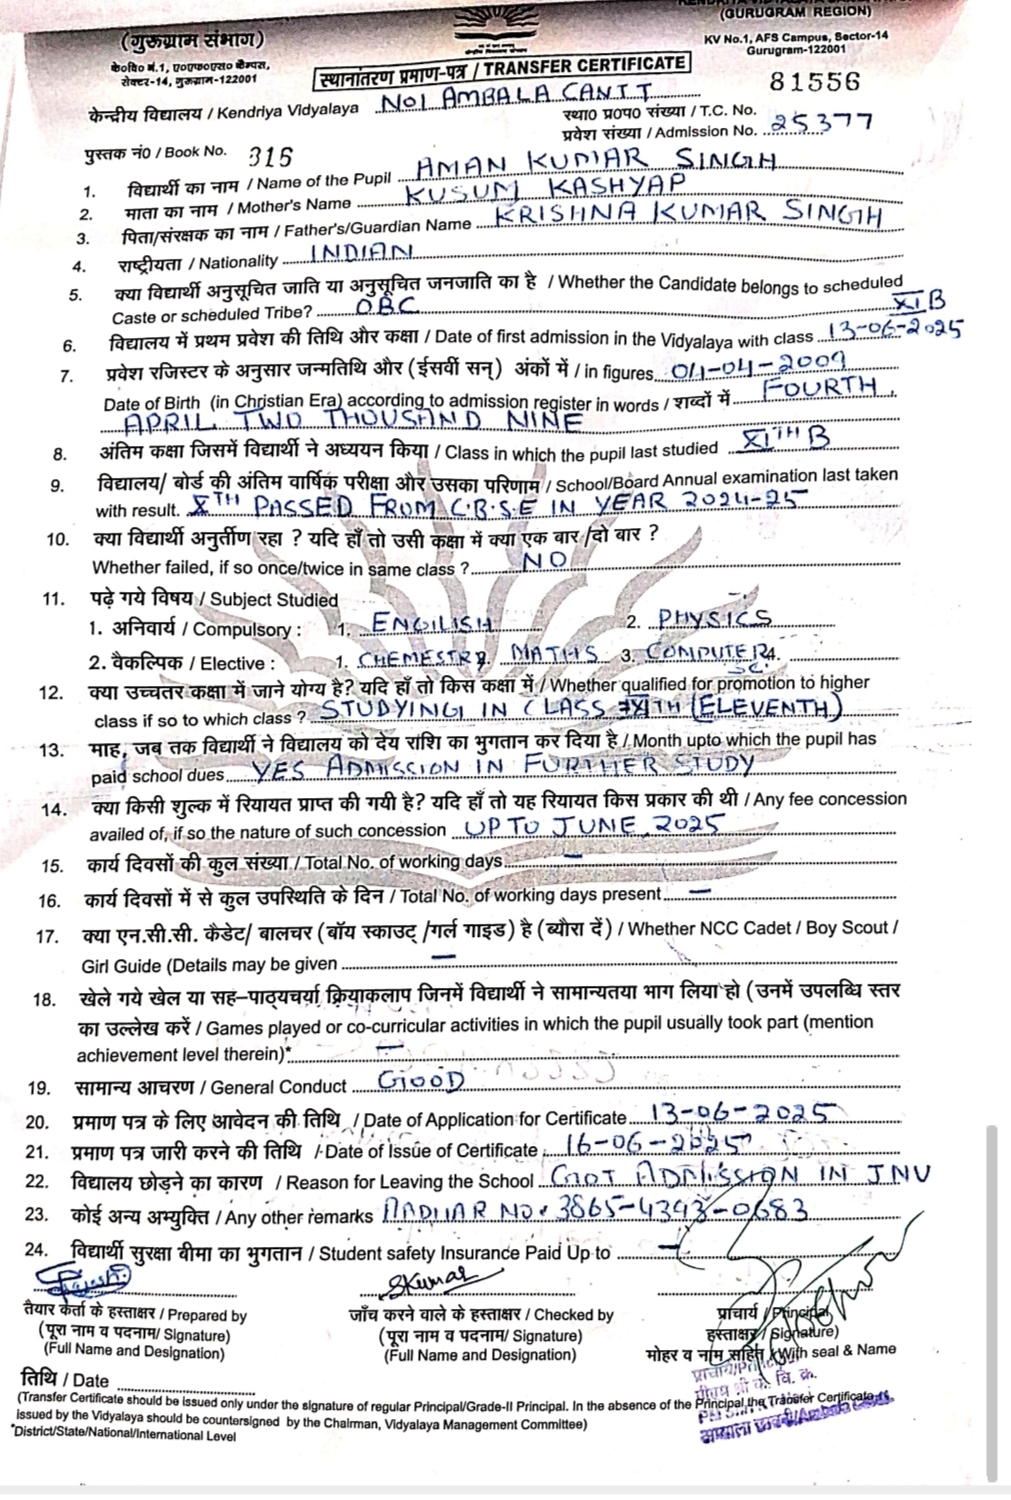 (GURUGRAM REGION)
(गुरूग्राम संभाग)
KV No.1, AFS Campus, Sector-14
Gurugram-122001
के०वि० नं.1, ए०एफ०एस० कैम्पस,
सेक्टर-14, गुरूग्राम-122001
स्थानांतरण प्रमाण-पत्र / TRANSFER CERTIFICATE
81556
केन्द्रीय विद्यालय / Kendriya Vidyalaya NO1 AMBALA CANTT
स्था० प्र०प० संख्या / T.C. No.
प्रवेश संख्या / Admission No. 25377
पुस्तक नं० / Book No. 316
1. विद्यार्थी का नाम / Name of the Pupil AMAN KUMAR SINGH
2. माता का नाम / Mother's Name KUSUM KASHYAP
3. पिता/संरक्षक का नाम / Father's/Guardian Name KRISHNA KUMAR SINGH
4. राष्ट्रीयता / Nationality INDIAN
5. क्या विद्यार्थी अनुसूचित जाति या अनुसूचित जनजाति का है / Whether the Candidate belongs to scheduled
Caste or scheduled Tribe? OBC
XI B
6. विद्यालय में प्रथम प्रवेश की तिथि और कक्षा / Date of first admission in the Vidyalaya with class 13-06-2025
7. प्रवेश रजिस्टर के अनुसार जन्मतिथि और (ईसवीं सन्) अंकों में / in figures 04-04-2009
Date of Birth (in Christian Era) according to admission register in words / शब्दों में FOURTH
APRIL TWO THOUSAND NINE
8. अंतिम कक्षा जिसमें विद्यार्थी ने अध्ययन किया / Class in which the pupil last studied XITH B
9. विद्यालय/ बोर्ड की अंतिम वार्षिक परीक्षा और उसका परिणाम / School/Board Annual examination last taken
with result. XTH PASSED FROM C.B.S.E IN YEAR 2024-25
10. क्या विद्यार्थी अनुर्तीण रहा ? यदि हाँ तो उसी कक्षा में क्या एक बार /दो बार ?
Whether failed, if so once/twice in same class ? NO
11. पढ़े गये विषय / Subject Studied
1. अनिवार्य / Compulsory : 1. ENGILISH 2. PHYSICS
2. वैकल्पिक / Elective : 1. CHEMESTRY 2. MATHS 3. COMPUTER 4.
SC.
12. क्या उच्चतर कक्षा में जाने योग्य है? यदि हाँ तो किस कक्षा में / Whether qualified for promotion to higher
class if so to which class ? STUDYING IN CLASS XITH (ELEVENTH)
13. माह, जब तक विद्यार्थी ने विद्यालय को देय राशि का भुगतान कर दिया है / Month upto which the pupil has
paid school dues YES ADMISSION IN FURTHER STUDY
14. क्या किसी शुल्क में रियायत प्राप्त की गयी है? यदि हाँ तो यह रियायत किस प्रकार की थी / Any fee concession
availed of, if so the nature of such concession UP TO JUNE, 2025
15. कार्य दिवसों की कुल संख्या / Total No. of working days –
16. कार्य दिवसों में से कुल उपस्थिति के दिन / Total No. of working days present –
17. क्या एन.सी.सी. कैडेट/ बालचर (बॉय स्काउट् /गर्ल गाइड) है (ब्यौरा दें) / Whether NCC Cadet / Boy Scout /
Girl Guide (Details may be given –
18. खेले गये खेल या सह–पाठ्यचर्या क्रियाकलाप जिनमें विद्यार्थी ने सामान्यतया भाग लिया हो (उनमें उपलब्धि स्तर
का उल्लेख करें / Games played or co-curricular activities in which the pupil usually took part (mention
achievement level therein)* –
19. सामान्य आचरण / General Conduct GOOD
20. प्रमाण पत्र के लिए आवेदन की तिथि / Date of Application for Certificate 13-06-2025
21. प्रमाण पत्र जारी करने की तिथि / Date of Issue of Certificate 16-06-2025
22. विद्यालय छोड़ने का कारण / Reason for Leaving the School GOT ADMISSION IN JNV
23. कोई अन्य अभ्युक्ति / Any other remarks AADHAR NO. 3865-4393-0683
24. विद्यार्थी सुरक्षा बीमा का भुगतान / Student safety Insurance Paid Up to –
SKumar
तैयार कर्ता के हस्ताक्षर / Prepared by
(पूरा नाम व पदनाम/ Signature)
(Full Name and Designation)
जाँच करने वाले के हस्ताक्षर / Checked by
(पूरा नाम व पदनाम/ Signature)
(Full Name and Designation)
प्राचार्य / Principal
हस्ताक्षर / Signature)
मोहर व नाम सहित / With seal & Name
तिथि / Date
(Transfer Certificate should be issued only under the signature of regular Principal/Grade-II Principal. In the absence of the Principal the Transfer Certificate is
issued by the Vidyalaya should be countersigned by the Chairman, Vidyalaya Management Committee)
*District/State/National/International Level